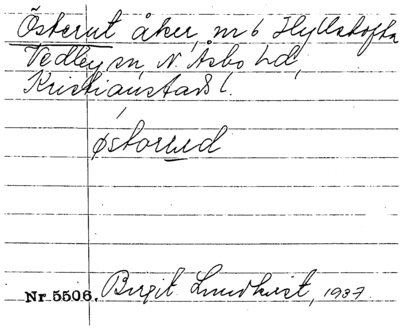 Österut åker, nr 6 Hyllstofta
Vedby sn N. Åsbo hd,
Kristianstads l.
østorud
Nr 5506. Birgit Lundkvist, 1937